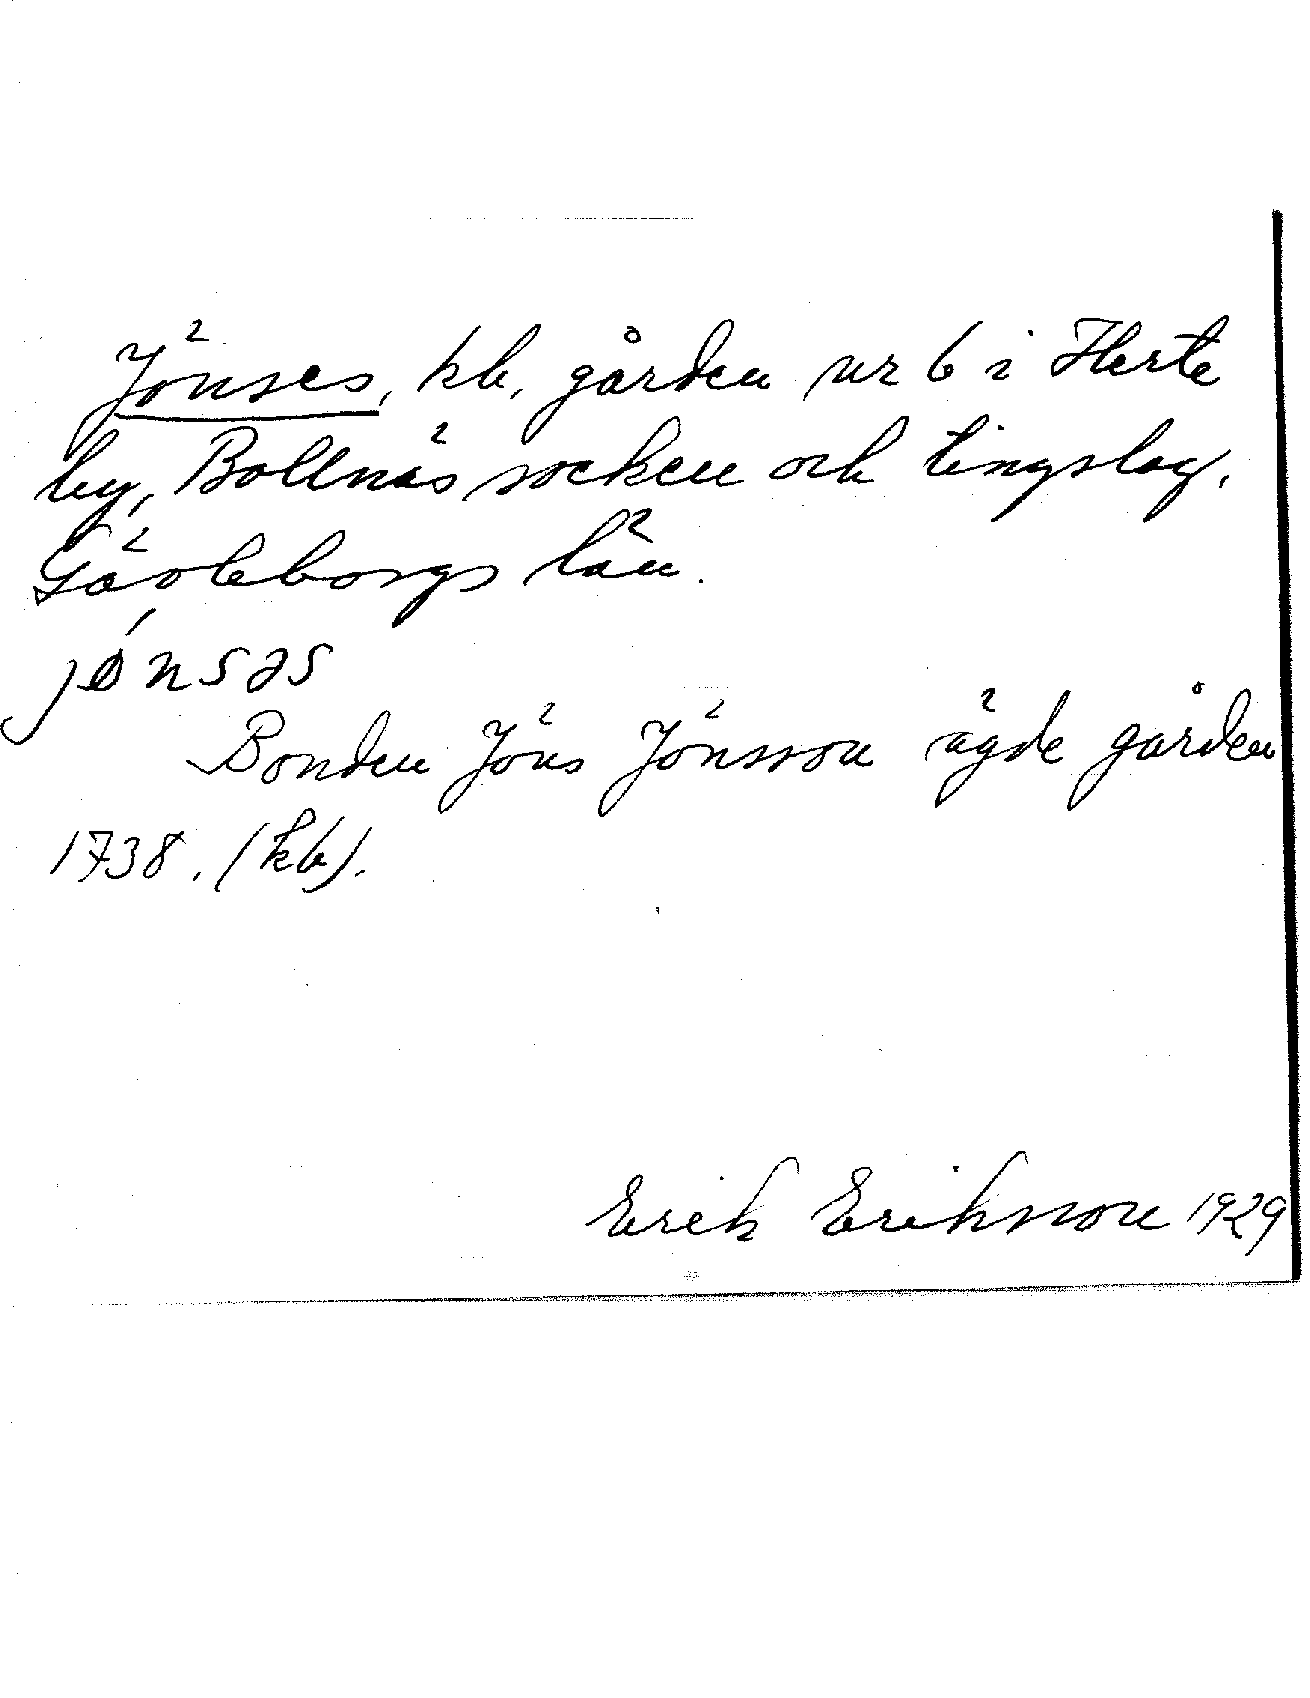 Jönses, kb, gården nr 6 i Herte
by, Bollnäs socken och tingslag.
Gävleborgs län.
jǿnsəs
Bonden Jöns Jönsson ägde gården
1738. (kb).
Erik Eriksson 1929